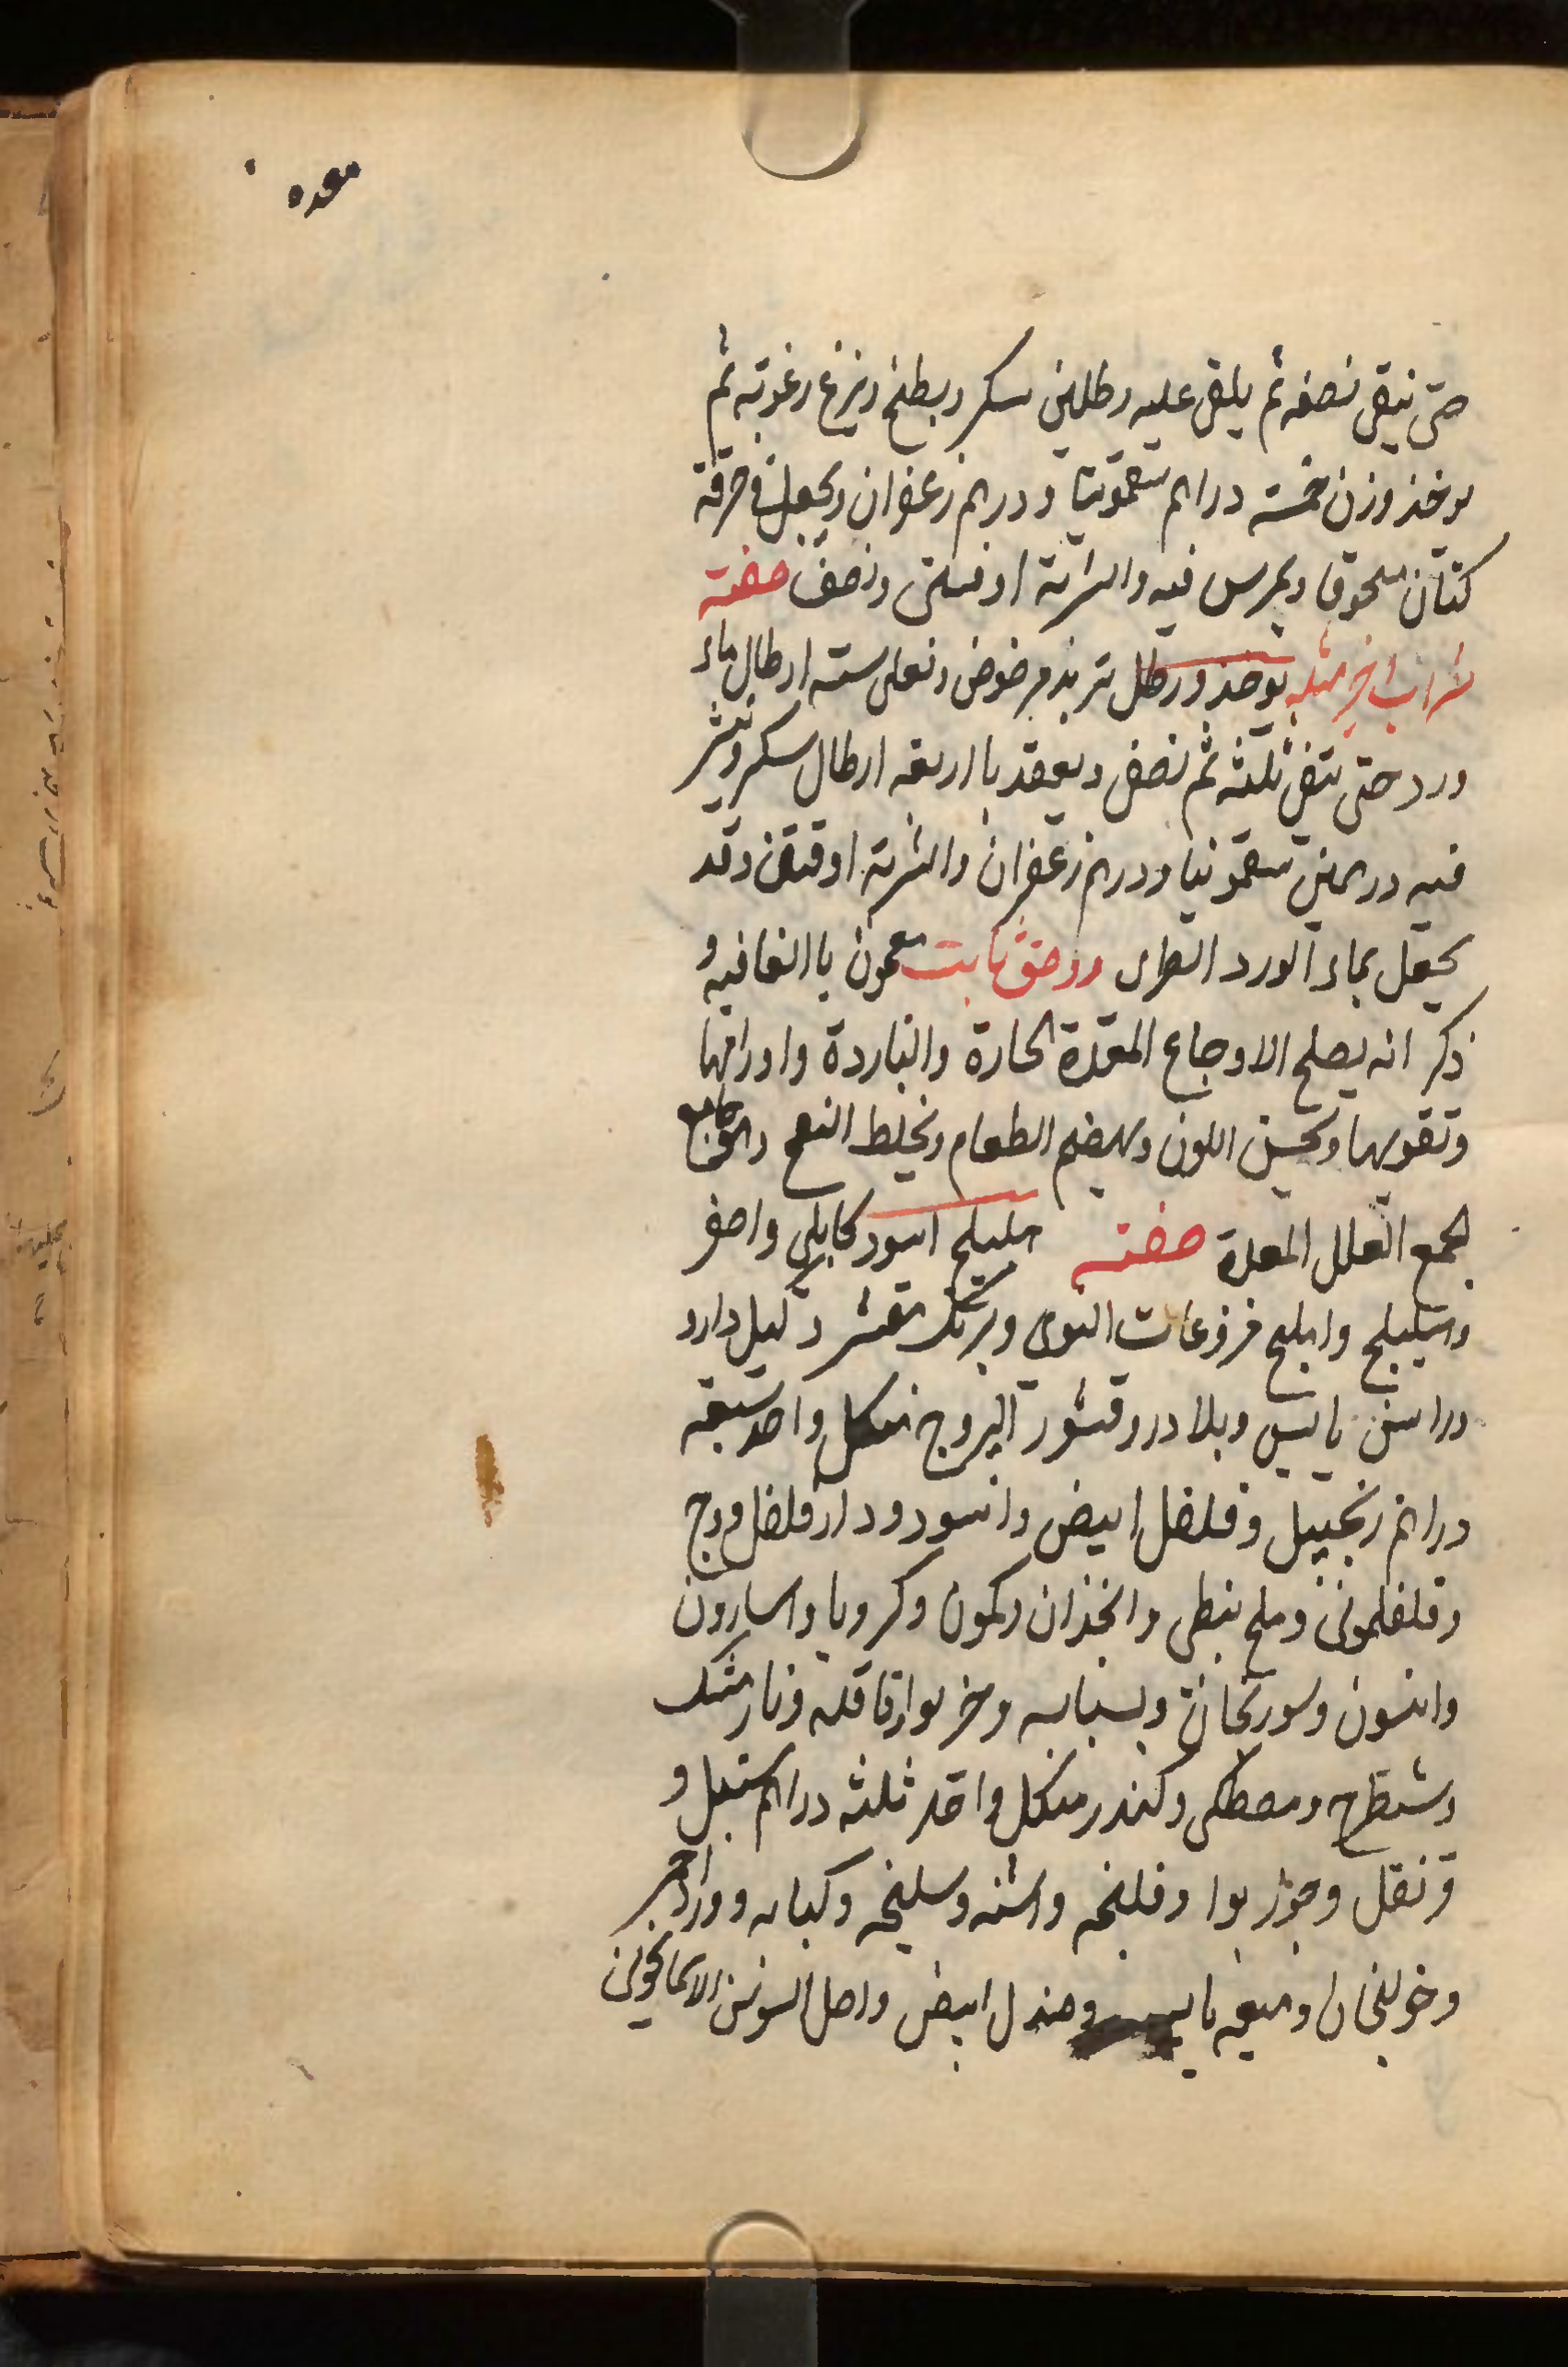 معده
حتى يبقى نصفه ثم يلقى عليه رطلين سكر ويطبخ وينزع رغوته ثم
يوخذ وزن خمسة دراهم سقمونيا ودرهم زعفران ويجعل في خرقة
كتان مسحوقا ويمرس فيه والشربة اوقيتين ونصف صفته
شراب اخر مثله يوخذ ورطل تربذ مرضوض ونغلى ستة ارطال ماء
ورد حتى ينقى ثلثه ثم نصفى ويعقد با اربعه ارطال سكر وينثر
فيه درهمين سقمونيا ودرهم زعفران والشربة اوقيتين وقد
يجعل بماء الورد الطرى معجون با الفافيه و
ذكر انه يصلح الاوجاع المعدة الحارة والباردة واورامها
وتقويها وتحسن اللون ويهضم الطعام
لجمع العلل المعدة صفته هليلج اسود كابلى واصفر
وبليلج واملج فزوعات النوى وبرنك مقشر د
وراسن يابس وبلادر وقشور من كل واحد سبعه
دراهم زنجبيل وفلفل ابيض واسود ودارفلفل ووج
وفلفلمونه وملح نبطى وانجذان وكمون وكرويا واسارون
وانسون وسورنجان وبسباسه وخربوا وقاقله ونارمشك
وشيطرج ومصطكى وكندر من كل واحد ثلثه دراهم سنبل و
قرنفل وجوز بوا وفلنجه واشنه وسليخه وكبابه وورد احمر
وخولنجان وميعه يابسه وصندل ابيض واصل السوسن الاسمانجونى